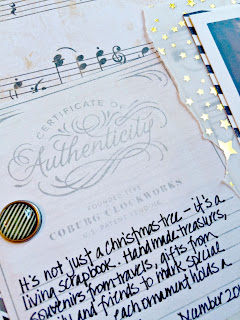 CERTIFICATE OF
Authenticity
COBURG CLOCKWORKS
It's not just a christmas tree – it's a
living scrapbook. Handmade treasures,
souvenirs from travels, gifts from
and friends to mark special
each ornament holds a